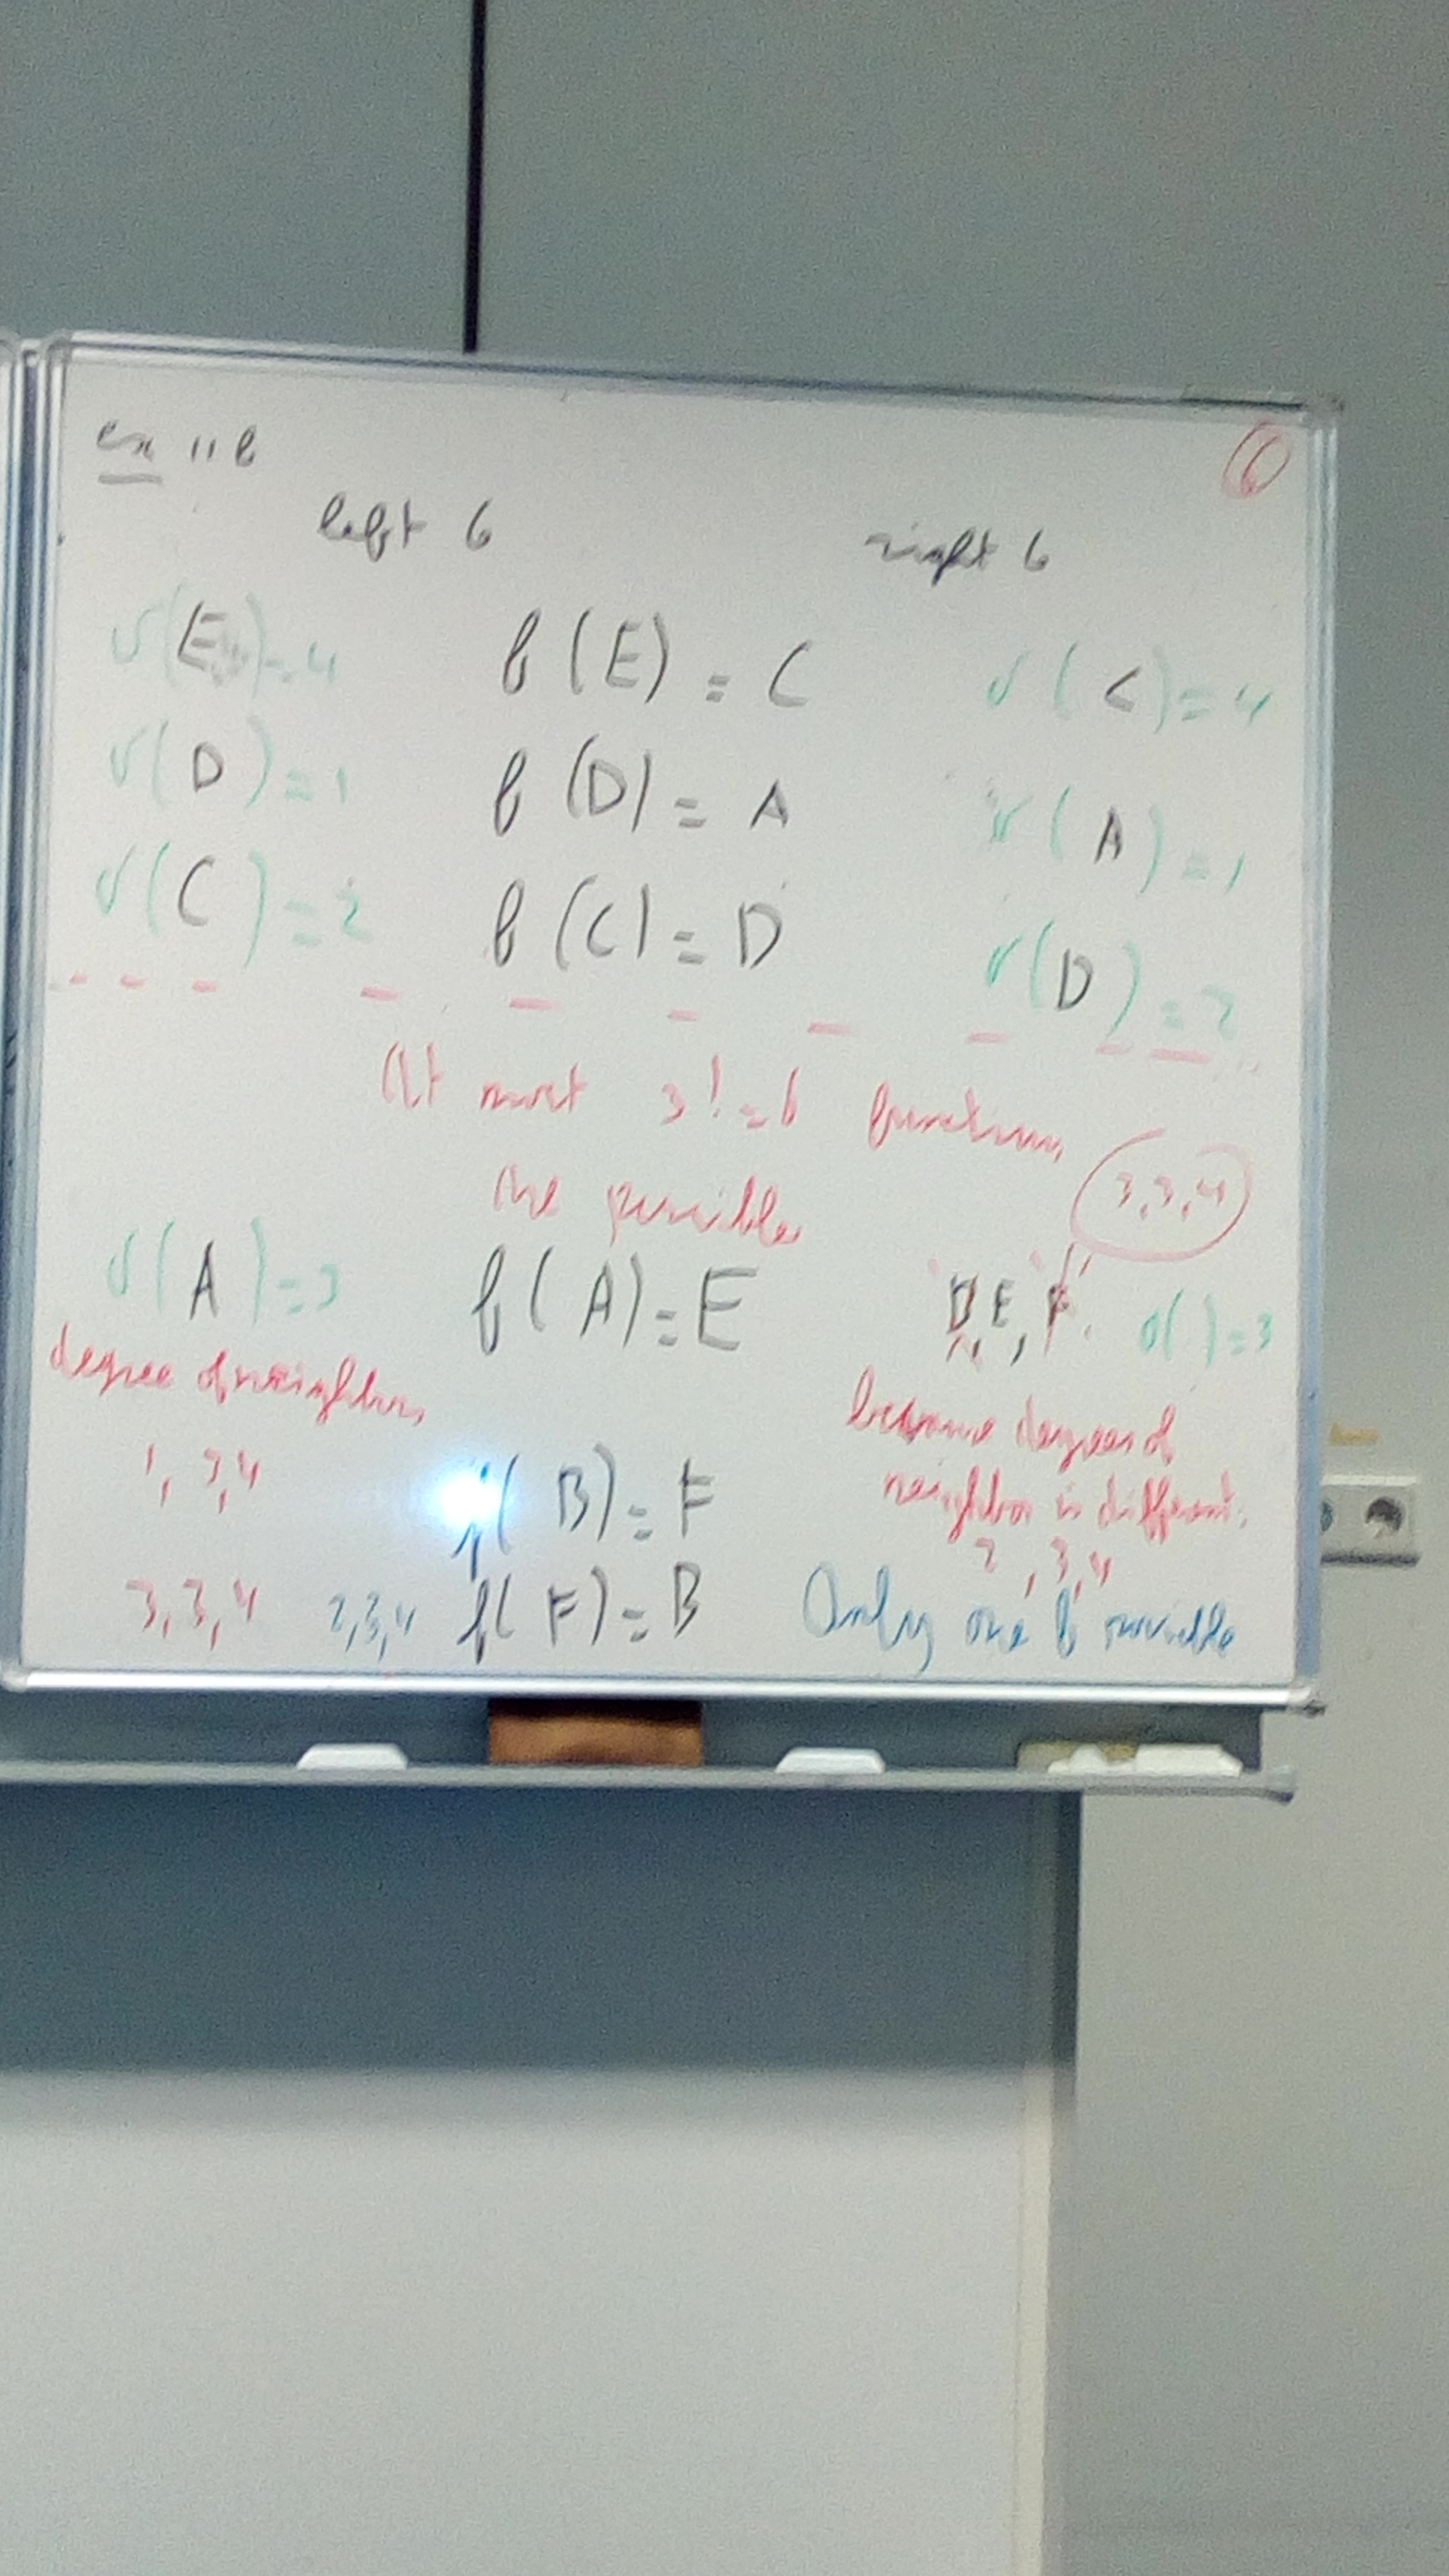 ex 11 b
6
left 6
right 6
v(E)=4 f(E)=C v(C)=4
v(D)=1 f(D)=A v(A)=1
v(C)=2 f(C)=D v(D)=2
At most 3!=6 functions
are possible
3,3,4
v(A)=3 f(A)=E B, E, F. v(.)=3
degree of neighbors
because degrees of
1, 3,4 f(B)=F
neighbor is different.
2, 3,4
3,3,4 2,3,4 f(F)=B Only one f possible